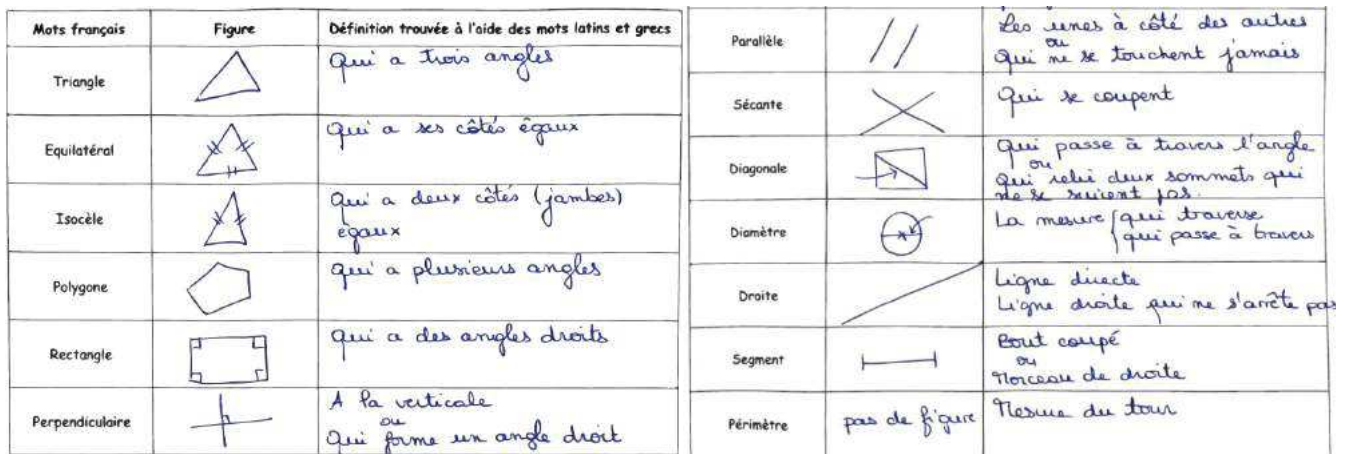 Mots français Figure Définition trouvée à l'aide des mots latins et grecs
Triangle Qui a trois angles
Equilatéral Qui a ses côtés égaux
Isocèle Qui a deux côtés (jambes)
égaux
Polygone Qui a plusieurs angles
Rectangle Qui a des angles droits
Perpendiculaire A la verticale
ou
Qui forme un angle droit
Parallèle Les unes à côté des autres
ou
Qui ne se touchent jamais
Sécante Qui se coupent
Diagonale Qui passe à travers l'angle
ou
Qui reli deux sommets qui
ne se suient pas.
Diamètre La mesure qui traverse
qui passe à travers
Droite Ligne directe
Ligne droite qui ne s'arrête pas
Segment Bout coupé
ou
Morceau de droite
Périmètre pas de figure Mesure du tour